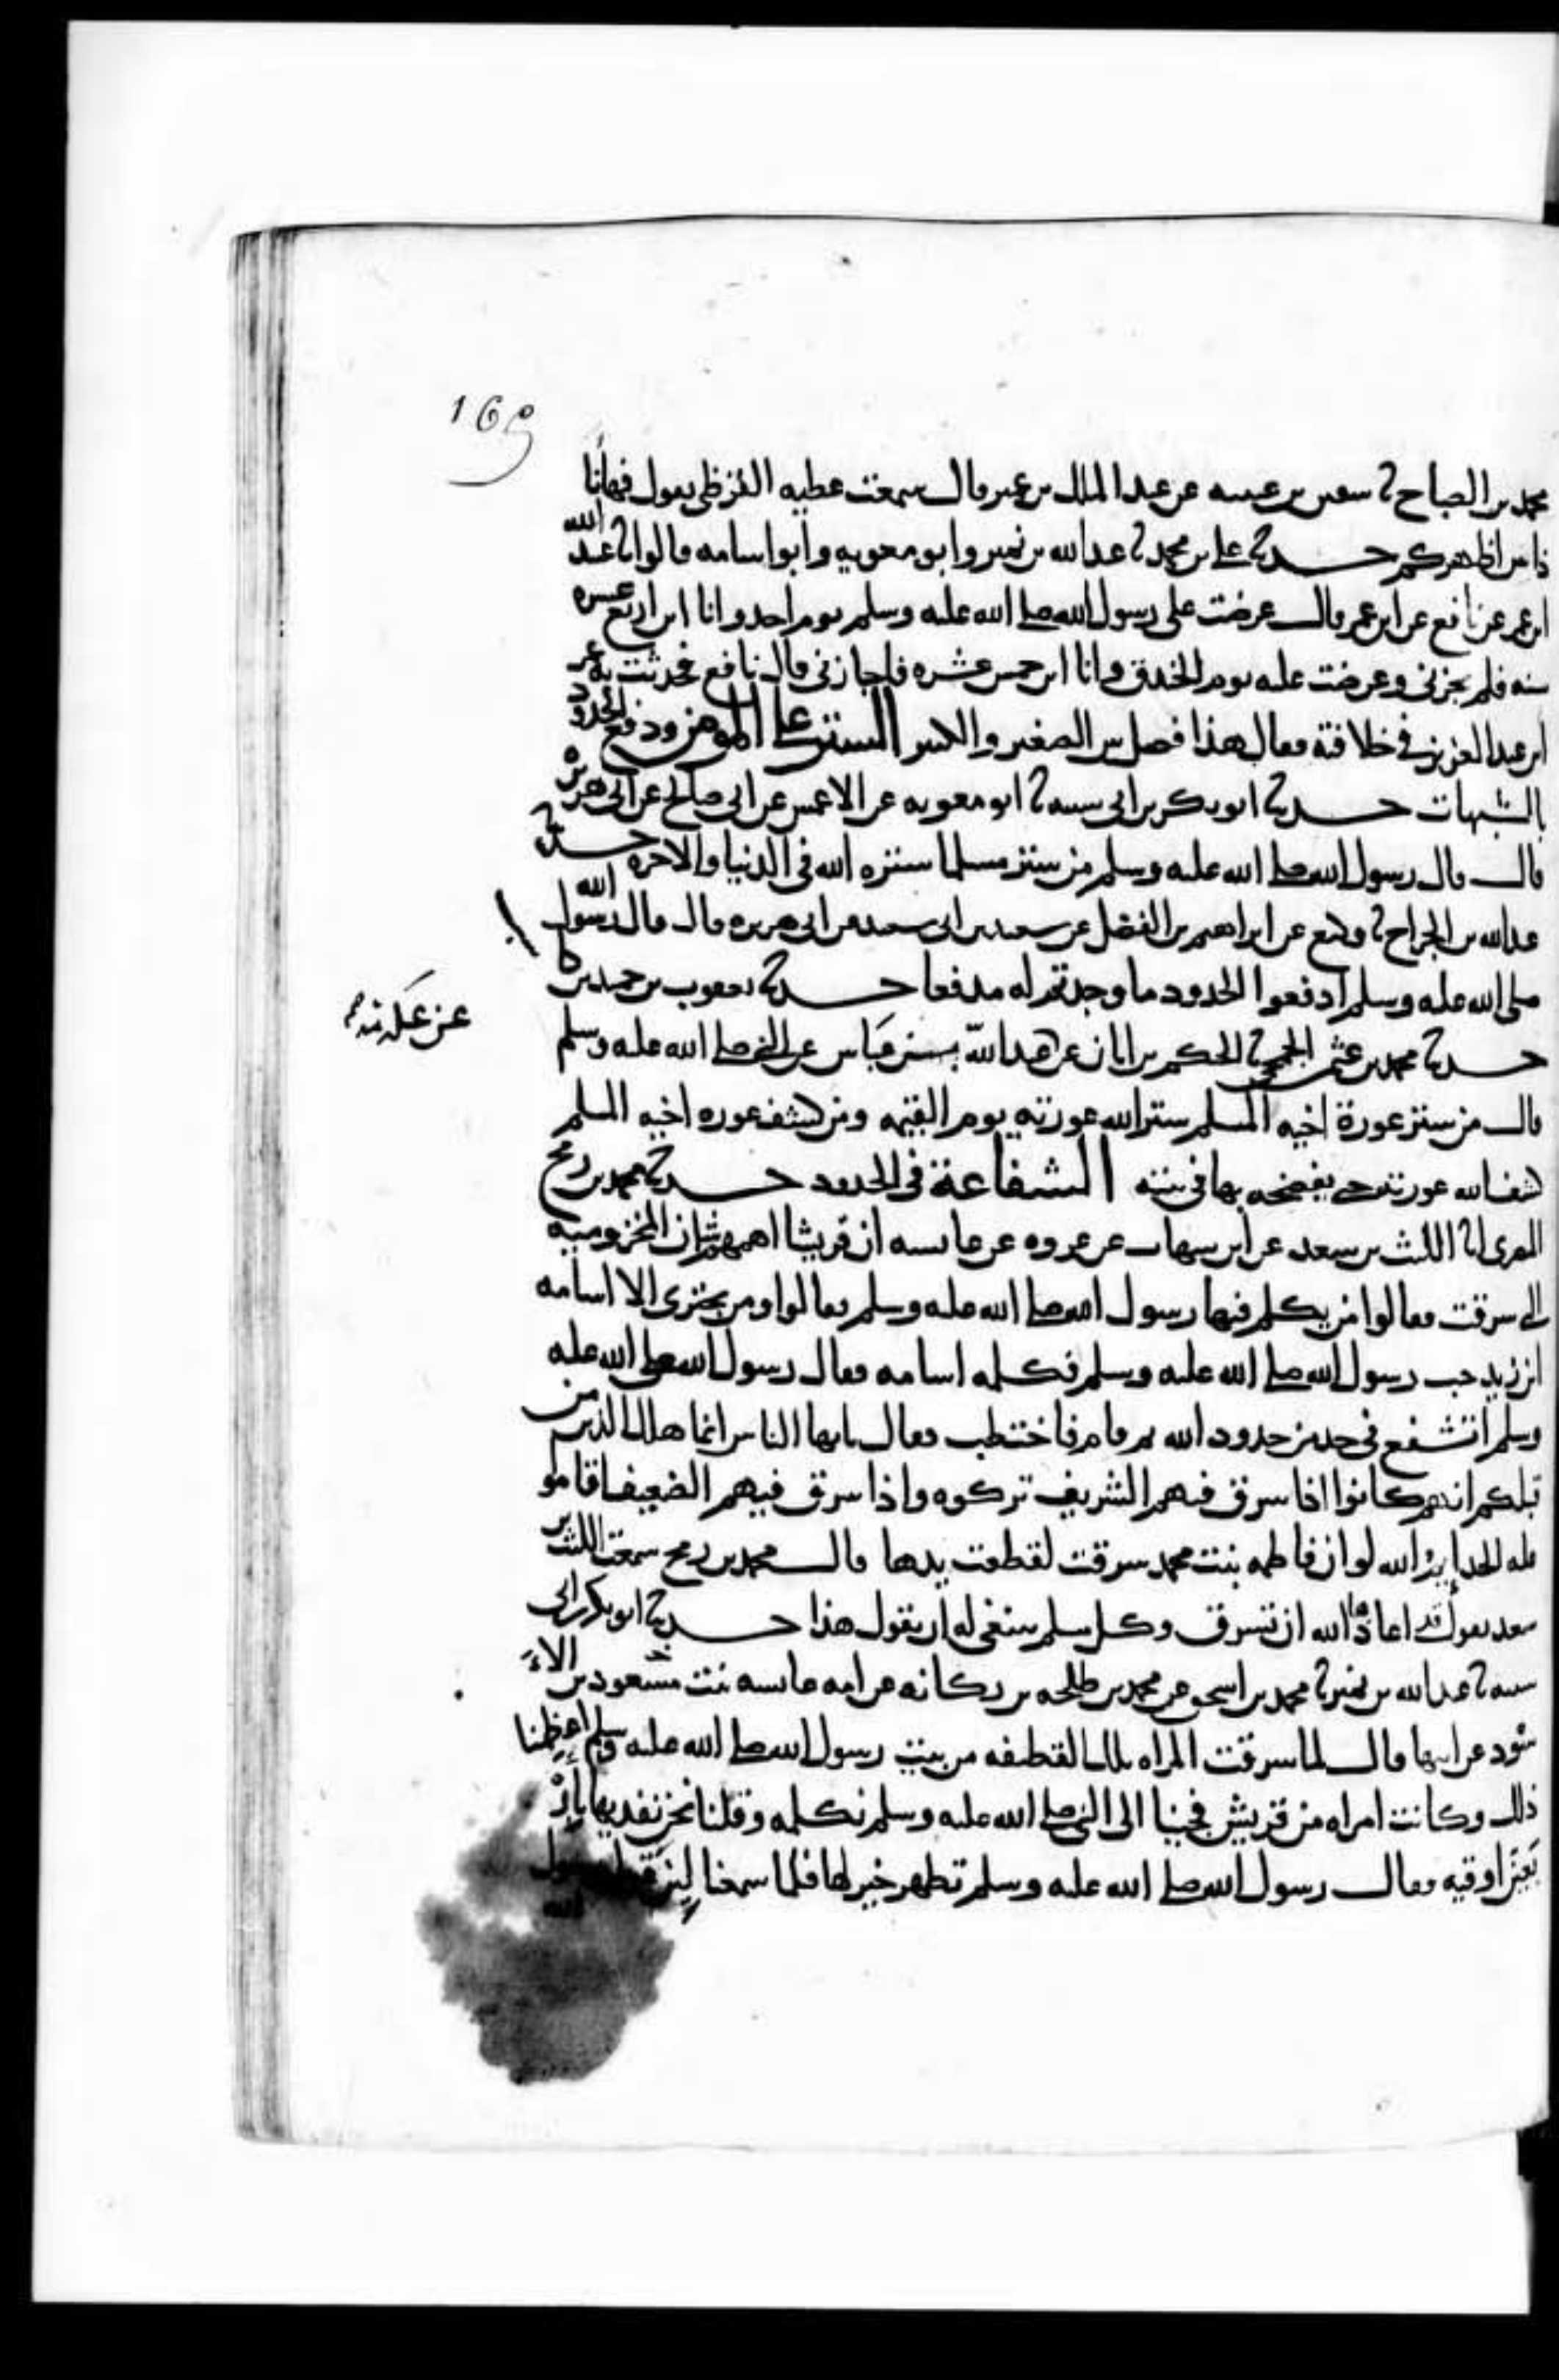 169
محمد بن الصباح ثنا سفين بن عيينه عن عبد الملك بن عمير قال سمعت عطيه القرظي يقول فهانا
ذا بين اظهركم حدثنا علي بن محمد ثنا عبد الله بن نمير وابو معويه وابو اسامه قالوا ثنا عبيد الله
ابن عمر عن نافع عن ابن عمر قال عرضت على رسول الله صلى الله عليه وسلم يوم احد وانا ابن اربع عشره
سنه فلم يجزني وعرضت عليه يوم الخندق وانا ابن خمس عشره فاجازني قال نافع فحدثت به عمر
ابن عبد العزيز في خلافته فقال هذا فصل بين الصغير والكبير الستر على المومن ودفع الحدود
بالشبهات حدثنا ابو بكر بن ابي شيبه ثنا ابو معويه عن الاعمش عن ابي صالح عن ابي هريره
قال قال رسول الله صلى الله عليه وسلم من ستر مسلما ستره الله في الدنيا والاخره حدثنا
عبد الله بن الجراح ثنا وكيع عن ابراهيم بن الفضل عن سعيد بن ابي سعيد عن ابي هريره قال قال رسول الله
صلى الله عليه وسلم ادفعوا الحدود ما وجدتم له مدفعا حدثنا يعقوب بن حميد بن كا
حدثنا محمد بن عثمن الجمحي ثنا الحكم بن ابان عن عبد الله بن عباس عن النبي صلى الله عليه وسلم
عن عكرمه
قال من ستر عورة اخيه المسلم ستر الله عورته يوم القيمه ومن كشف عوره اخيه المسلم
كشف الله عورته حتى يفضحه بها في بيته الشفاعة في الحدود حدثنا محمد بن رمح
المصري انا الليث بن سعد عن ابن شهاب عن عروه عن عايشه ان قريشا اهمهم شان المخزوميه
التي سرقت فقالوا من يكلم فيها رسول الله صلى الله عليه وسلم فقالوا ومن يجتري الا اسامه
ابن زيد حب رسول الله صلى الله عليه وسلم فكلمه اسامه فقال رسول الله صلى الله عليه
وسلم اتشفع في حد من حدود الله ثم قام فاختطب فقال يايها الناس انما هلك الذين من
قبلكم انهم كانوا اذا سرق فيهم الشريف تركوه واذا سرق فيهم الضعيف اقاموا
عليه الحد وايم الله لو ان فاطمه بنت محمد سرقت لقطعت يدها قال محمد بن رمح سمعت الليث بن
سعد يقول قد اعاذها الله ان تسرق وكل مسلم ينبغي له ان يقول هذا حدثنا ابو بكر بن ابي
شيبه ثنا عبد الله بن نمير ثنا محمد بن اسحق عن محمد بن طلحه بن ركانه عن امه عايشه بنت مسعود بن الا
سود عن ابيها قال لما سرقت المراه تلك القطيفه من بيت رسول الله صلى الله عليه وسلم اعظمنا
ذلك وكانت امراه من قريش فجينا الى النبي صلى الله عليه وسلم نكلمه وقلنا نحن نفديها بار
بعين اوقيه فقال رسول الله صلى الله عليه وسلم تطهر خير لها فلما سمعنا لين قول رسول
الله